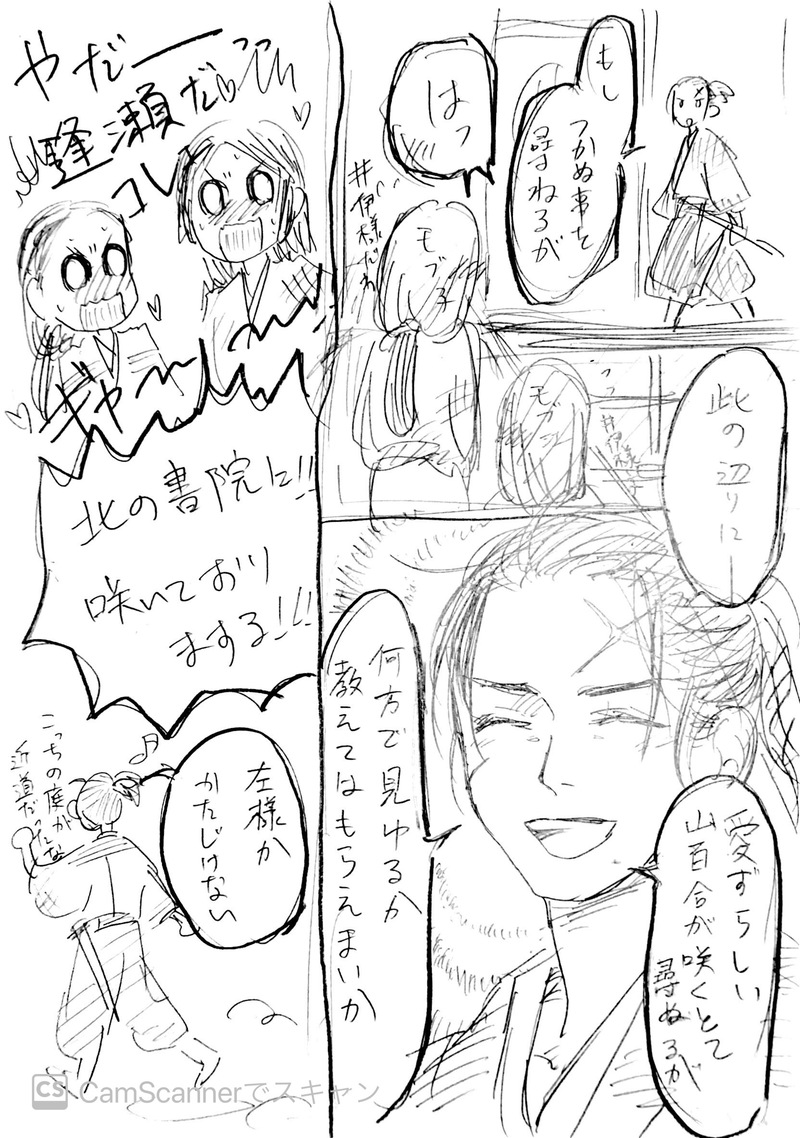 もし
つかぬ事を
尋ねるが
はっ
井伊様だわ
モブ子
モブ子
井伊様よ
此の辺りに
愛ずらしい
山百合が咲くとて
尋ぬるが
何方で見ゆるか
教えてはもらえまいか
やだーっっ
逢瀬だ♡
コレ
ギャーーー!!
北の書院に!!
咲いており
まする!!!
左様か
かたじけない
こっちの庭が
近道だったな
CS CamScannerでスキャン